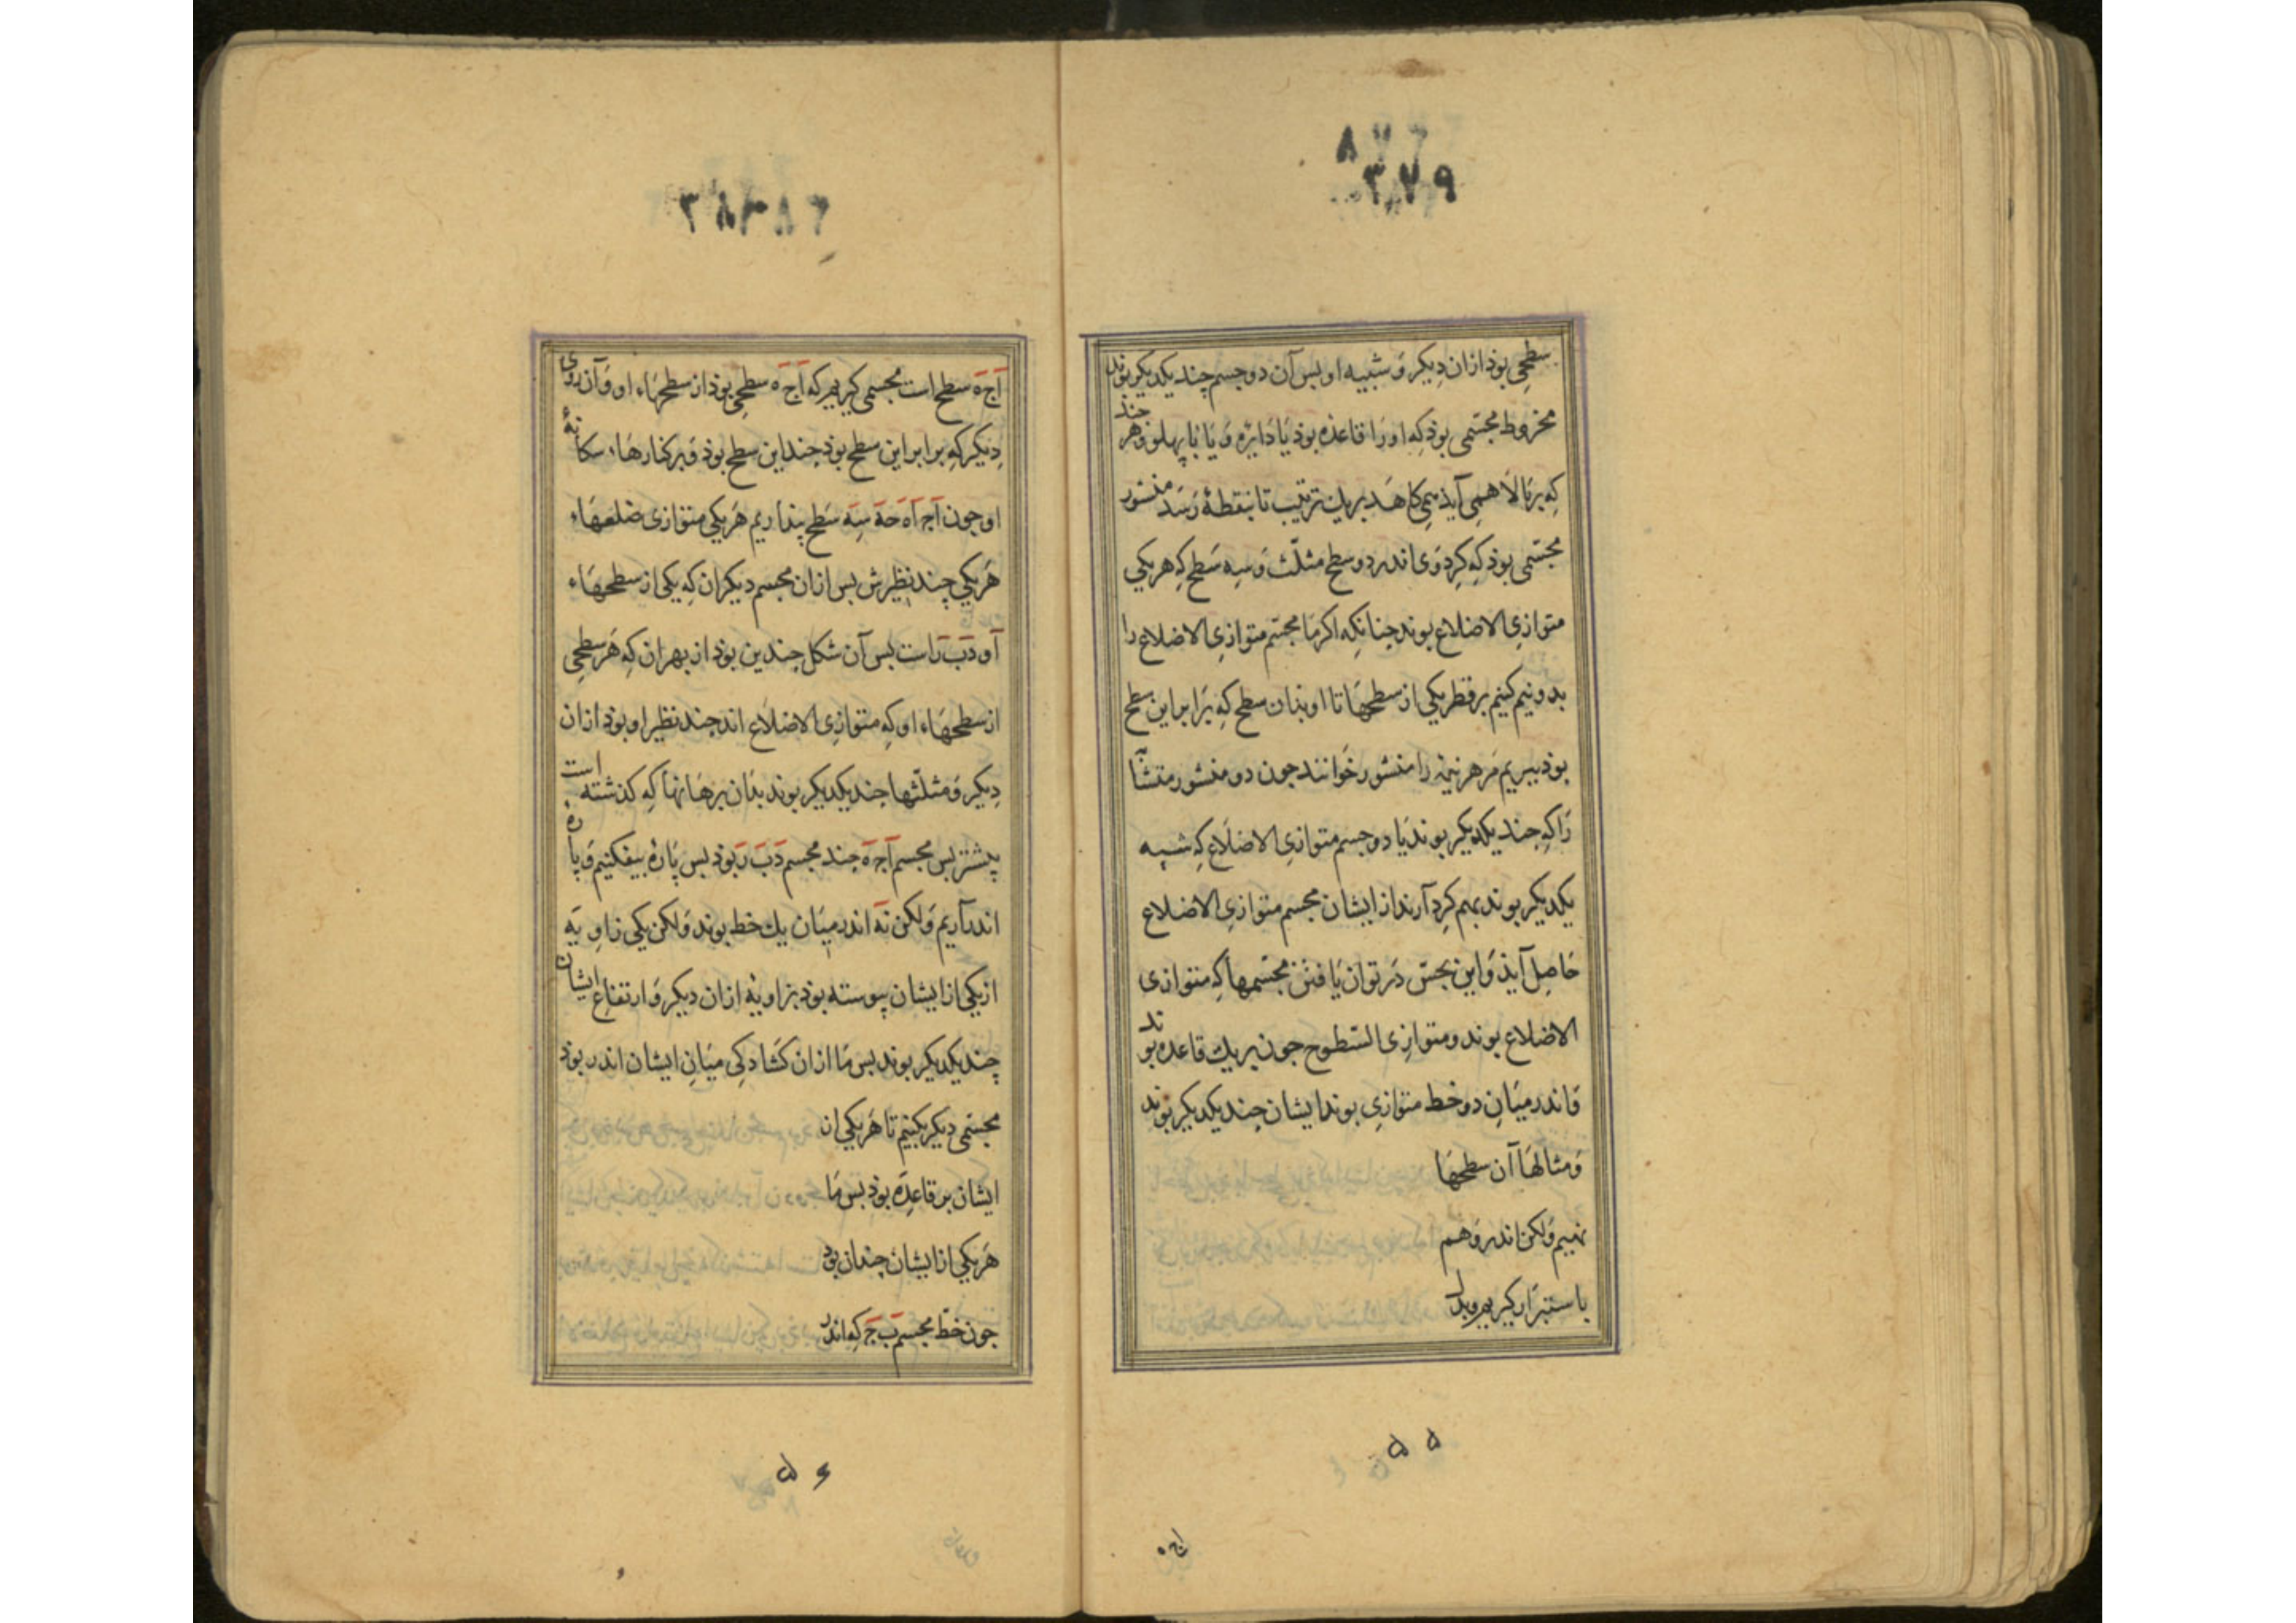 ۳۷۹
سطحی بوذ ازان دیکر و شبیه او بس آن دو جسم چند یکدیکر بوند
مخروط مجسّمی بوذ که او را قاعذه بوذ یا دایره و یا با پهلو و هر چند
که بر بالا همی آیذ می کاهد بریك ترتیب تا بنقطهٔ رسد منشور
مجسّمی بوذ که کرد وی اندر دو سطح مثلّث و سه سطح که هر یکی
متوازی الاضلاع بوند چنانکه اکر ما مجسّم متوازی الاضلاع را
بدو نیم کنیم بر قطر یکی از سطحها تا او بذان سطح که برابر این سطح
بوذ ببریم مر هر نیمه را منشور خوانند جون دو منشور متشا
را که جند یکدیکر بوند یا دو جسم متوازی الاضلاع که شبیه
یکدیکر بوند بهم کرد آرند از ایشان مجسم متوازی الاضلاع
حاصل آیذ و این بحس در توان یافتن مجسّمها که متوازی
الاضلاع بوند و متوازی السّطوح جون بریك قاعده بوند
و اندر میان دو خط متوازی بوند ایشان چند یکدیکر بوند
و مثالها آن سطحها
نهیم ولکن اندر وهم
با ستبرا کیریم و بدل
۵۵
اج ه
اَجَه سطح است مجسمی کیریم که اَج ه سطحی بوذ از سطحهاء او و آن روی
دیکر که برابر این سطح بوذ چند این سطح بوذ و بر کنارهاء سکانهٔ
او جون اَج اَه حَه سه سطح پنداریم هر یکی متوازی ضلعهاء
هر یکی چند نظیرش بس ازان مجسم دیکران که یکی از سطحهاء
او دَبَ رَاست بس آن شکل جندین بوذ از بهر ان که هر سطحی
از سطحهاء او که متوازی الاضلاع اند جند نظیر او بوذ ازان
دیکر و مثلّثها جند یکدیکر بوند بذان برهانها که کذشته است
پیشتر بس مجسم اَجَه جند مجسم دَبَ رَ بوذ بس پارهٔ بیفکنیم و پاره
اندر آریم ولکن نه اندر میان یك خط بوند ولکن یکی زاویه
از یکی از ایشان پیوسته بوذ بزاویهٔ ازان دیکر و ارتفاع ایشان
چند یکدیکر بوند بس ما ازان کشادکی میان ایشان اندر بوذ
مجسّمی دیکر بکنیم تا هر یکی از
ایشان بر قاعده بوذ بس ما
هر یکی از ایشان چندان بود
جون خط مجسم بَ جَ که اندر
۵۶